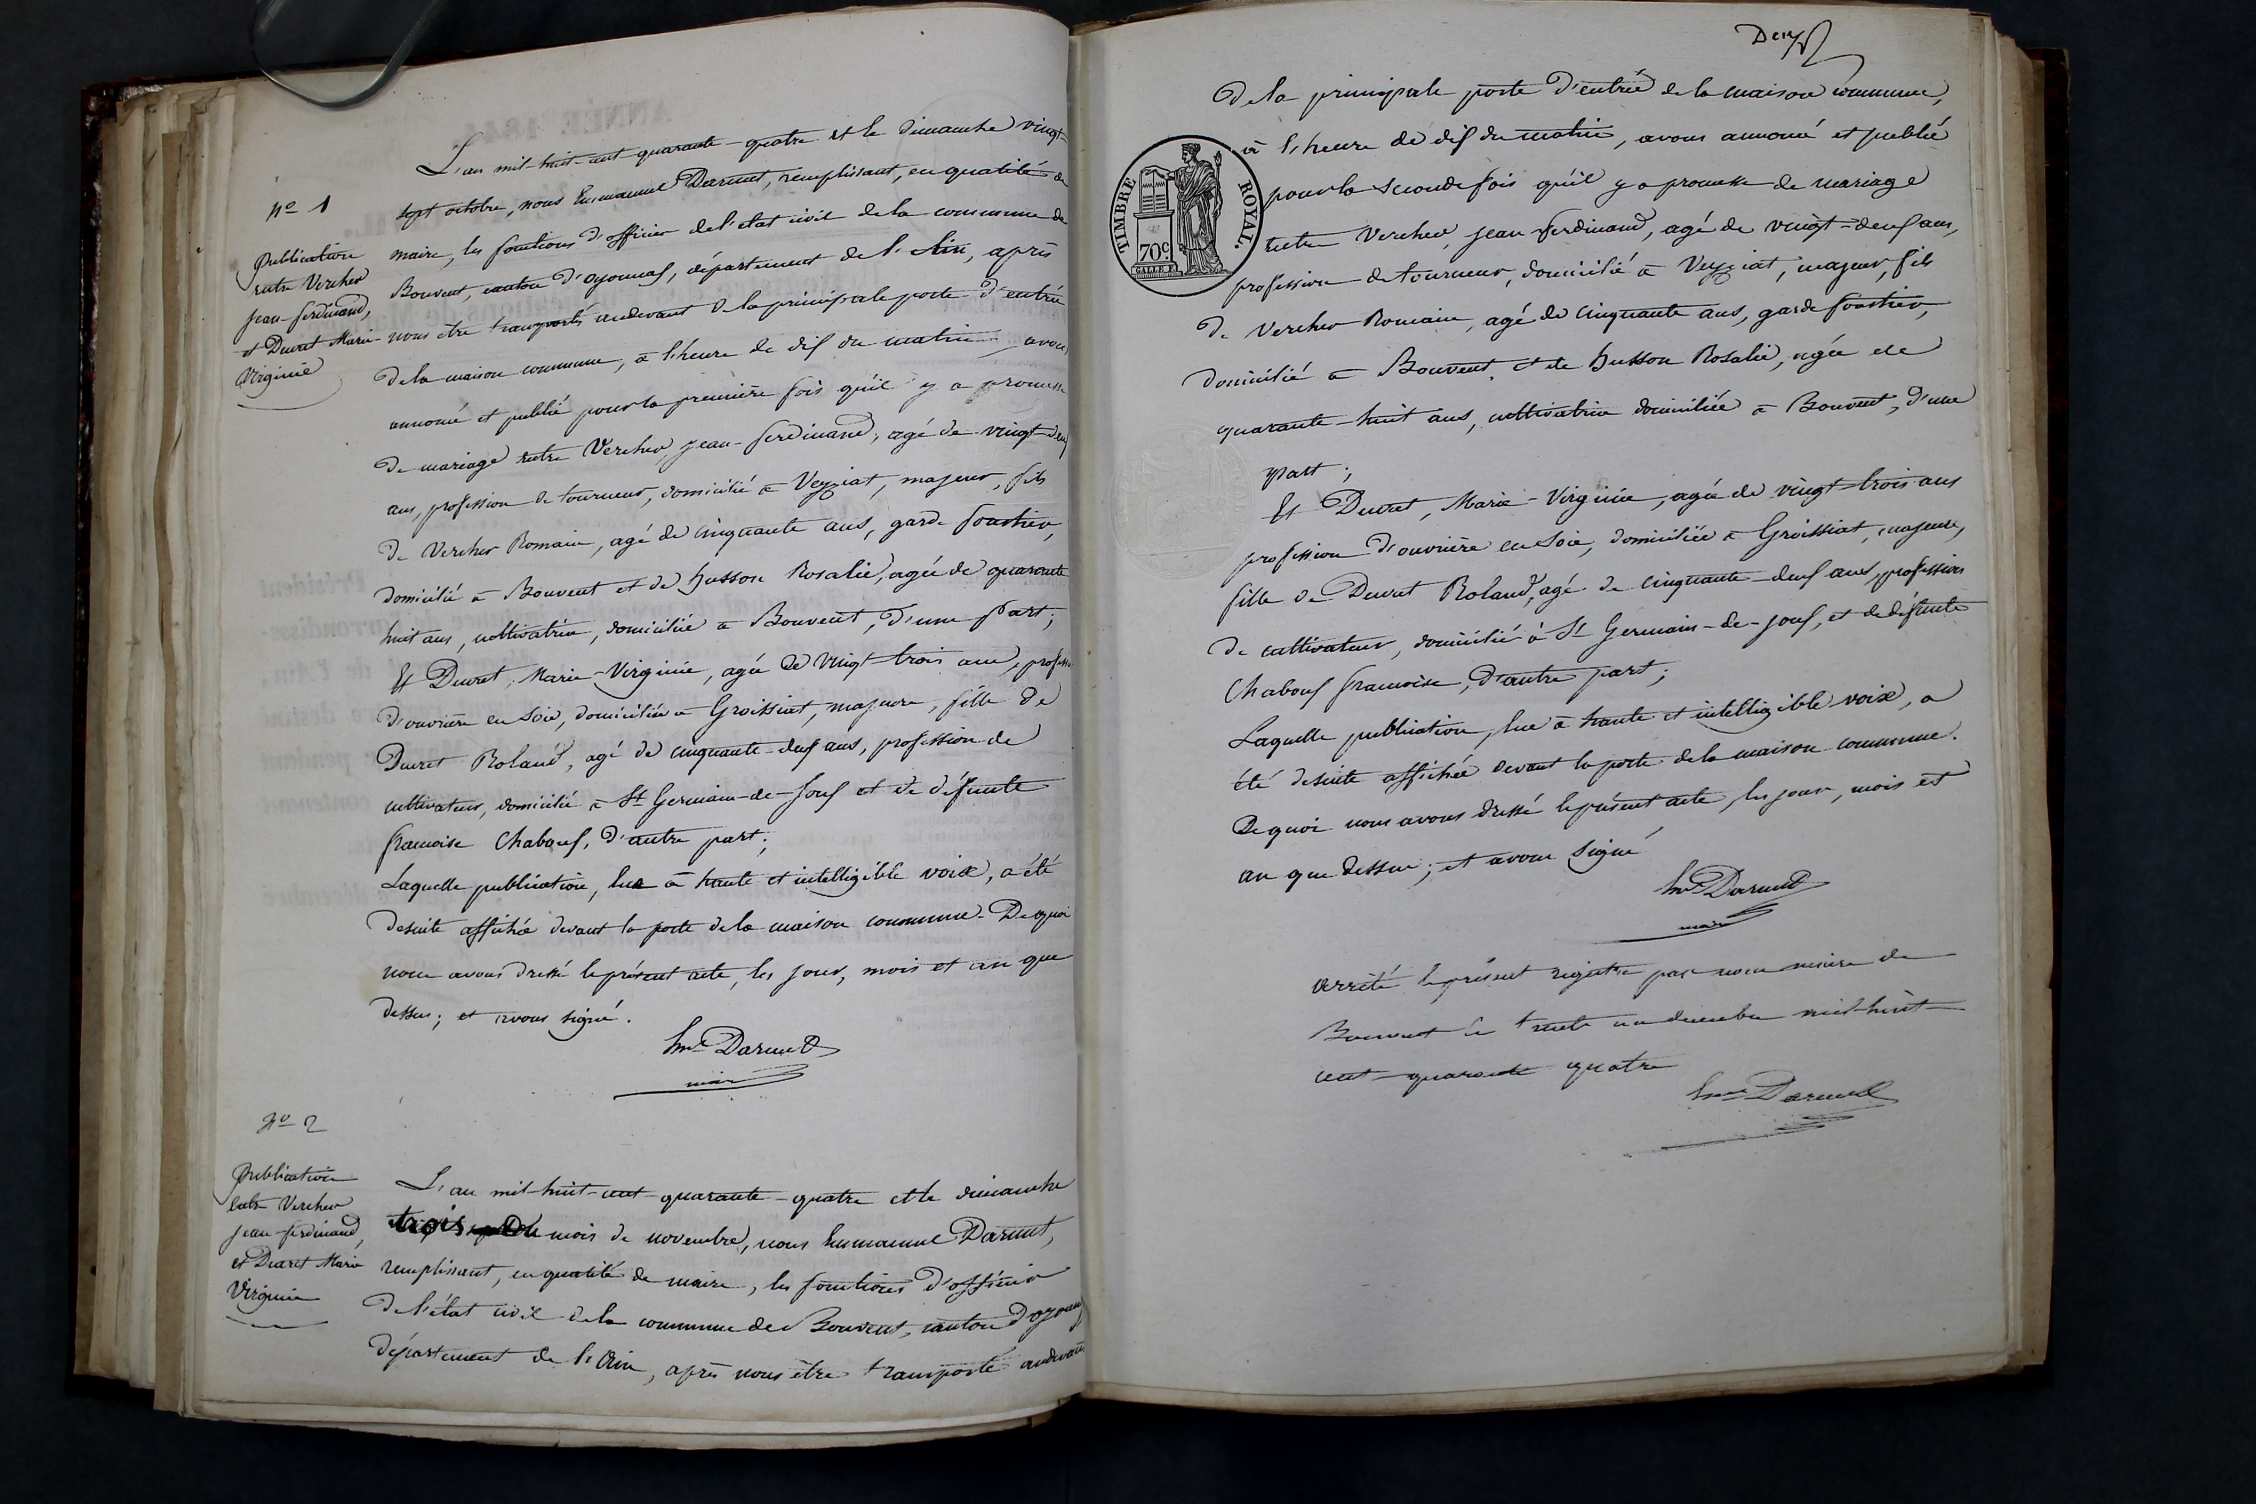 nº 1
Publication
entre Vercher
jean-ferdinand,
et Ducret Marie-
Virginie
L'an mil-huit-cent quarante-quatre et le dimanche vingt-
sept octobre, nous Emmanuel Darmet, remplissant, en qualité de
maire, les fonctions d'officier de l'état civil de la commune de
Bouvent, canton d'oyonnax, département de l'Ain, après
nous être transportés au devant de la principale porte d'entrée
de la maison commune, à l'heure de dix du matin avons
annoncé et publié pour la première fois qu'il y a promesse
de mariage entre Vercher, jean-ferdinand, agé de vingt-deux
ans, profession de tourneur, domicilié à Veyziat, majeur, fils
de Vercher Romain, agé de cinquante ans, garde forestier,
domicilié à Bouvent et de husson Rosalie, agée de quarante
huit ans, cultivatrice, domiciliée à Bouvent, d'une part;
Et Ducret, Marie-Virginie, agée de vingt-trois ans, profession
d'ouvrière en soie, domiciliée à Groissiat, majeure, fille de
Ducret Roland, agé de cinquante-deux ans, profession de
cultivateur, domicilié à St Germain-de-joux et de défunte
francoise Chabouf, d'autre part;
Laquelle publication, lue à haute et intelligible voix, a été
desuite affichée devant la porte de la maison commune. De quoi
nous avons dressé le présent acte, les jour, mois et an que
dessus; et avons signé.
Emel Darmet
maire
nº 2
Publication
Entre Vercher
jean-ferdinand,
et Ducret Marie
Virginie
L'an mil-huit-cent-quarante-quatre et le dimanche
trois du mois de novembre, nous Emmanuel Darmet,
remplissant, en qualité de maire, les fonctions d'officier
de l'état civil de la commune de Bouvent, canton d'oyonnax
département de l'Ain, après nous être transporté au devant
Deux
de la principale porte d'entrée de la maison commune,
à l'heure de dix du matin, avons annoncé et publié
pour la seconde fois qu'il y a promesse de mariage
entre Vercher, jean-ferdinand, agé de vingt-deux ans,
profession de tourneur, domicilié à Veyziat, majeur, fils
de Vercher Romain, agé de cinquante ans, garde forestier,
domicilié à Bouvent, et de husson Rosalie, agée de
quarante-huit ans, cultivatrice domiciliée à Bouvent, d'une
part;
Et Ducret, Marie-Virginie, agée de vingt-trois ans
profession d'ouvrière en soie, domiciliée à Groissiat, majeure,
fille de Ducret Roland, agé de cinquante-deux ans, profession
de cultivateur, domicilié à St Germain-de-joux, et de défunte
Chabouf francoise, d'autre part;
Laquelle publication, lue à haute et intelligible voix, a
été desuite affichée devant la porte de la maison commune.
De quoi nous avons dressé le présent acte, les jour, mois et
an que dessus; et avons signé
Emel Darmet
maire
arrêté le présent registre par nous maire de
Bouvent le trente un decembre mil-huit-
cent-quarante quatre
Emel Darmet
TIMBRE ROYAL.
70c